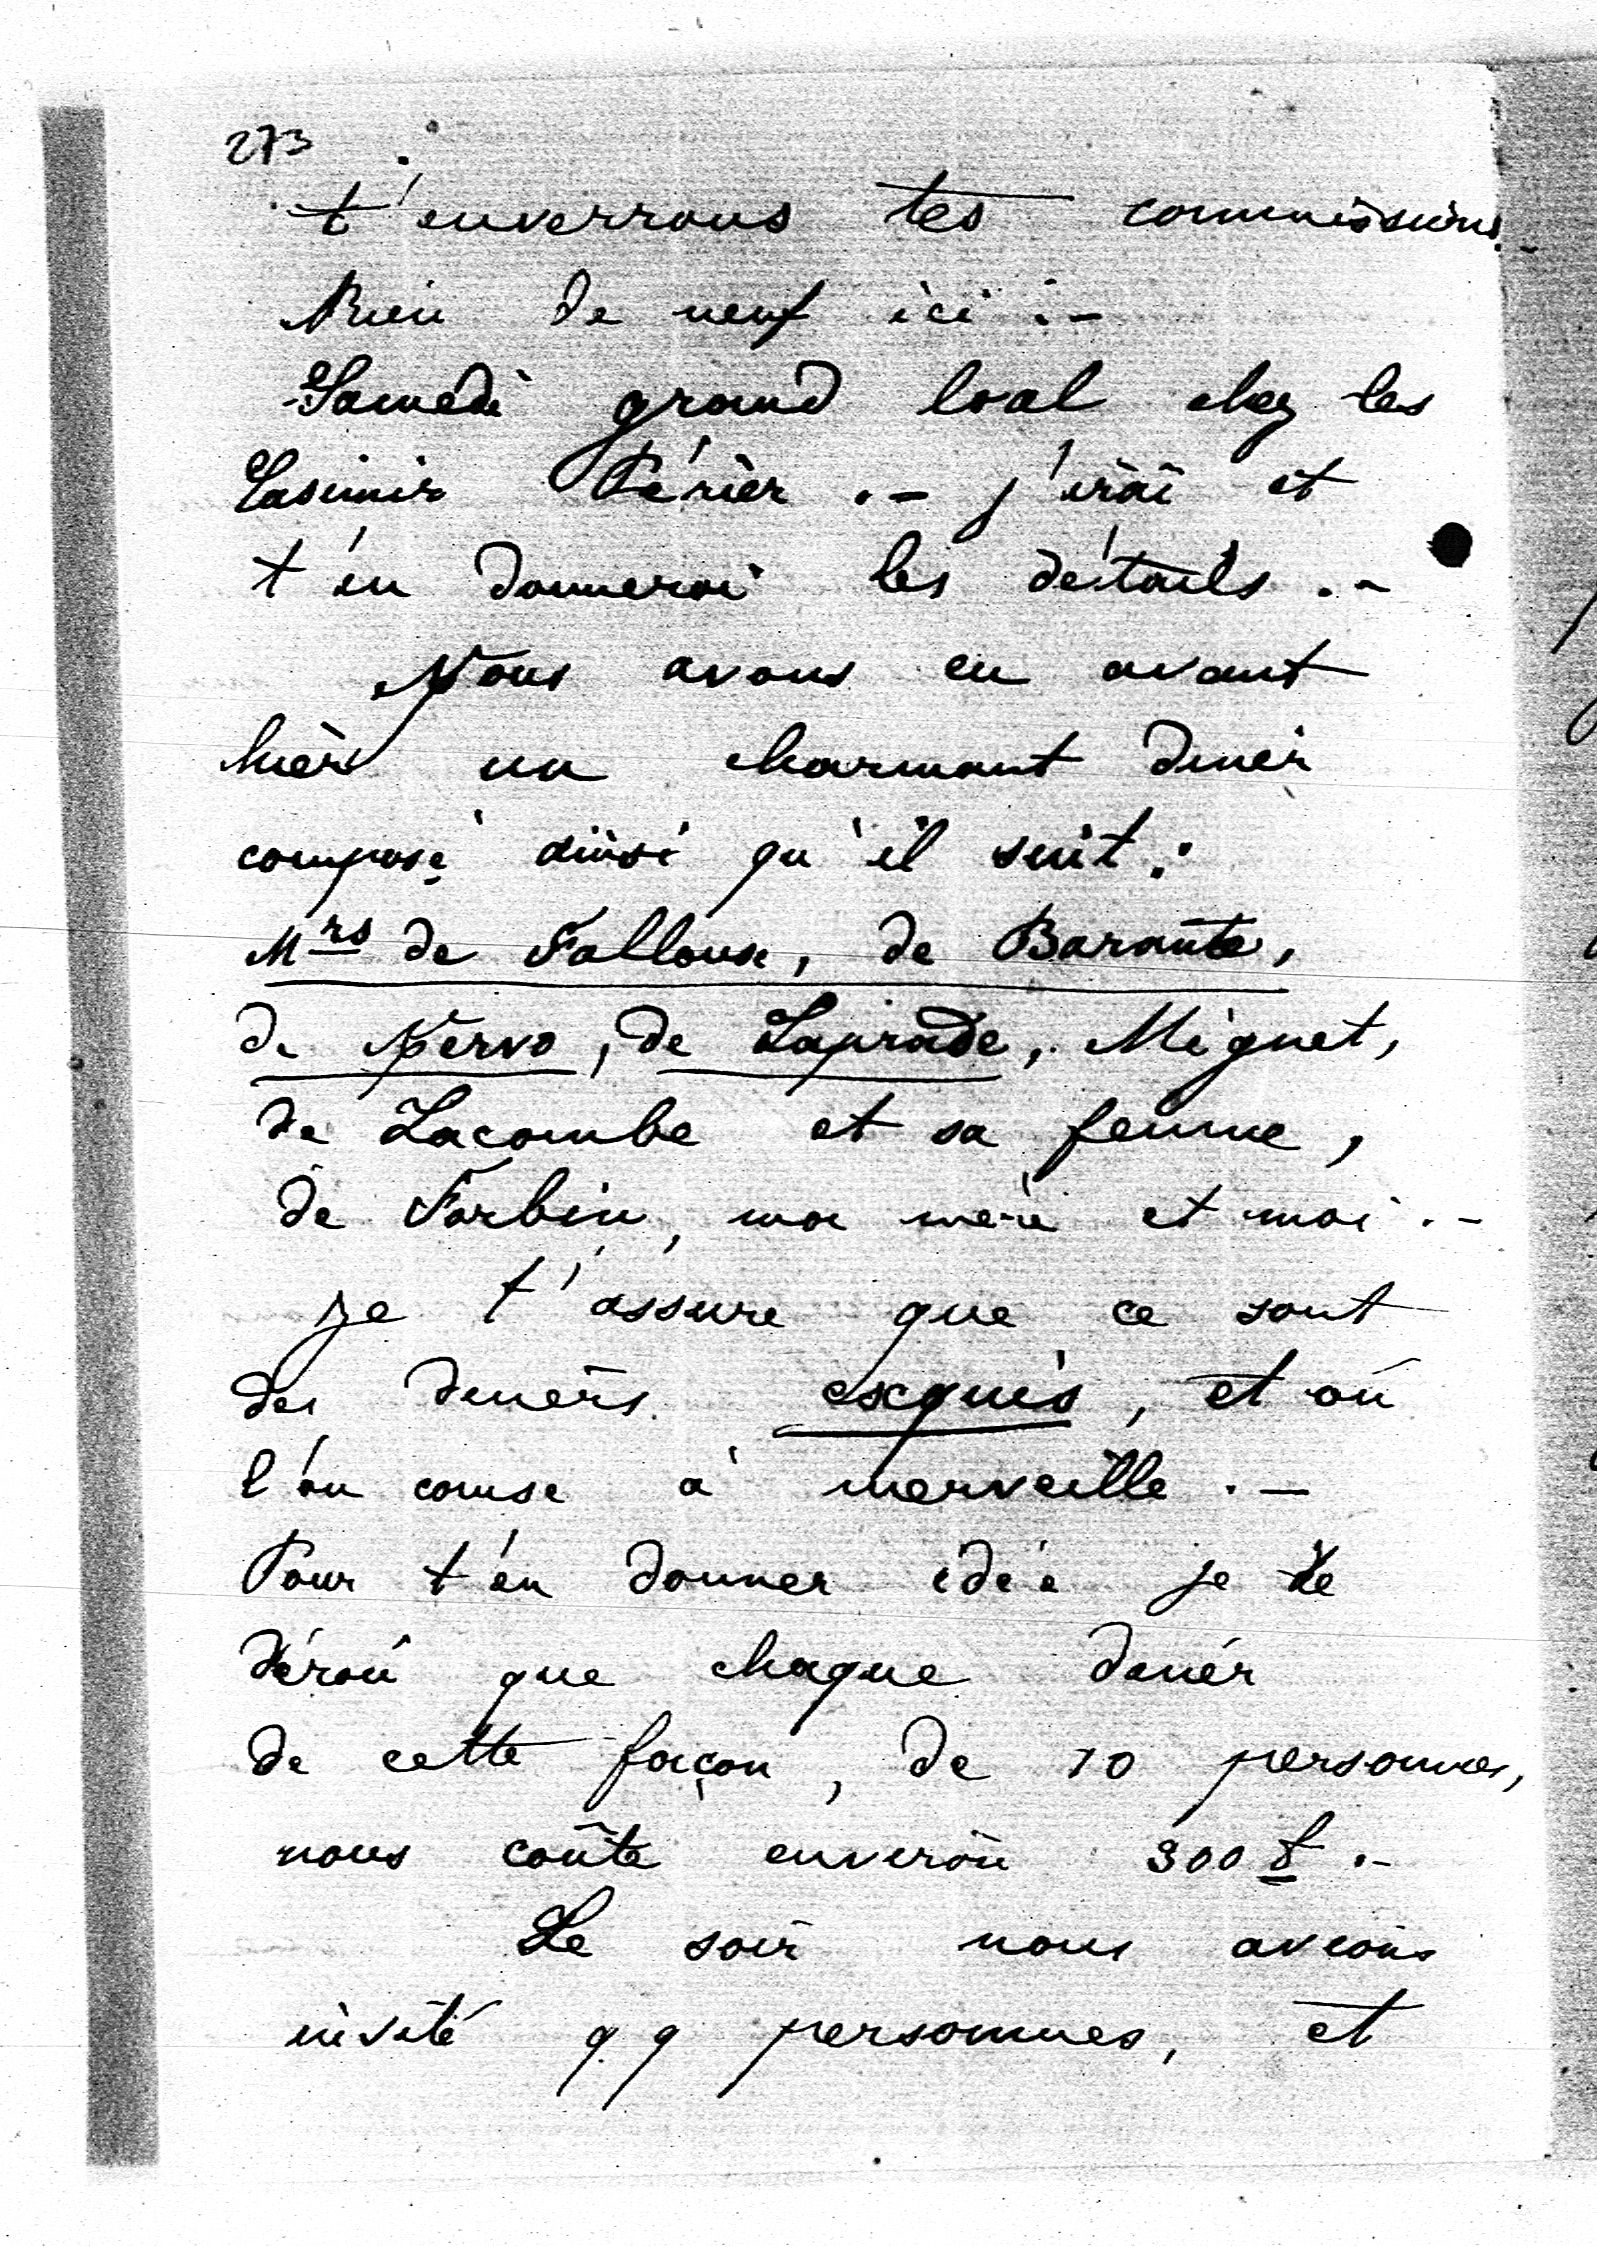 273
t'enverrons tes commissions.-
Rien de neuf ici :-
Samedi grand bal chez les
Casimir Périer .- j'irai et
t'en donnerai les détails .-
Nous avons eu avant
hier un charmant diner
composé ainsi qu'il suit :
Mrs de Falloux, de Barante,
de Nervo, de Laprade, Mignet,
de Lacombe et sa femme,
de Forbin, ma mère et moi .-
Je t'assure que ce sont
des diners exquis, et où
l'on cause à merveille .-
Pour t'en donner idée je te
dirai que chaque diner
de cette façon, de 10 personnes,
nous coûte environ 300 f .-
Le soir nous avions
invité qq personnes, et